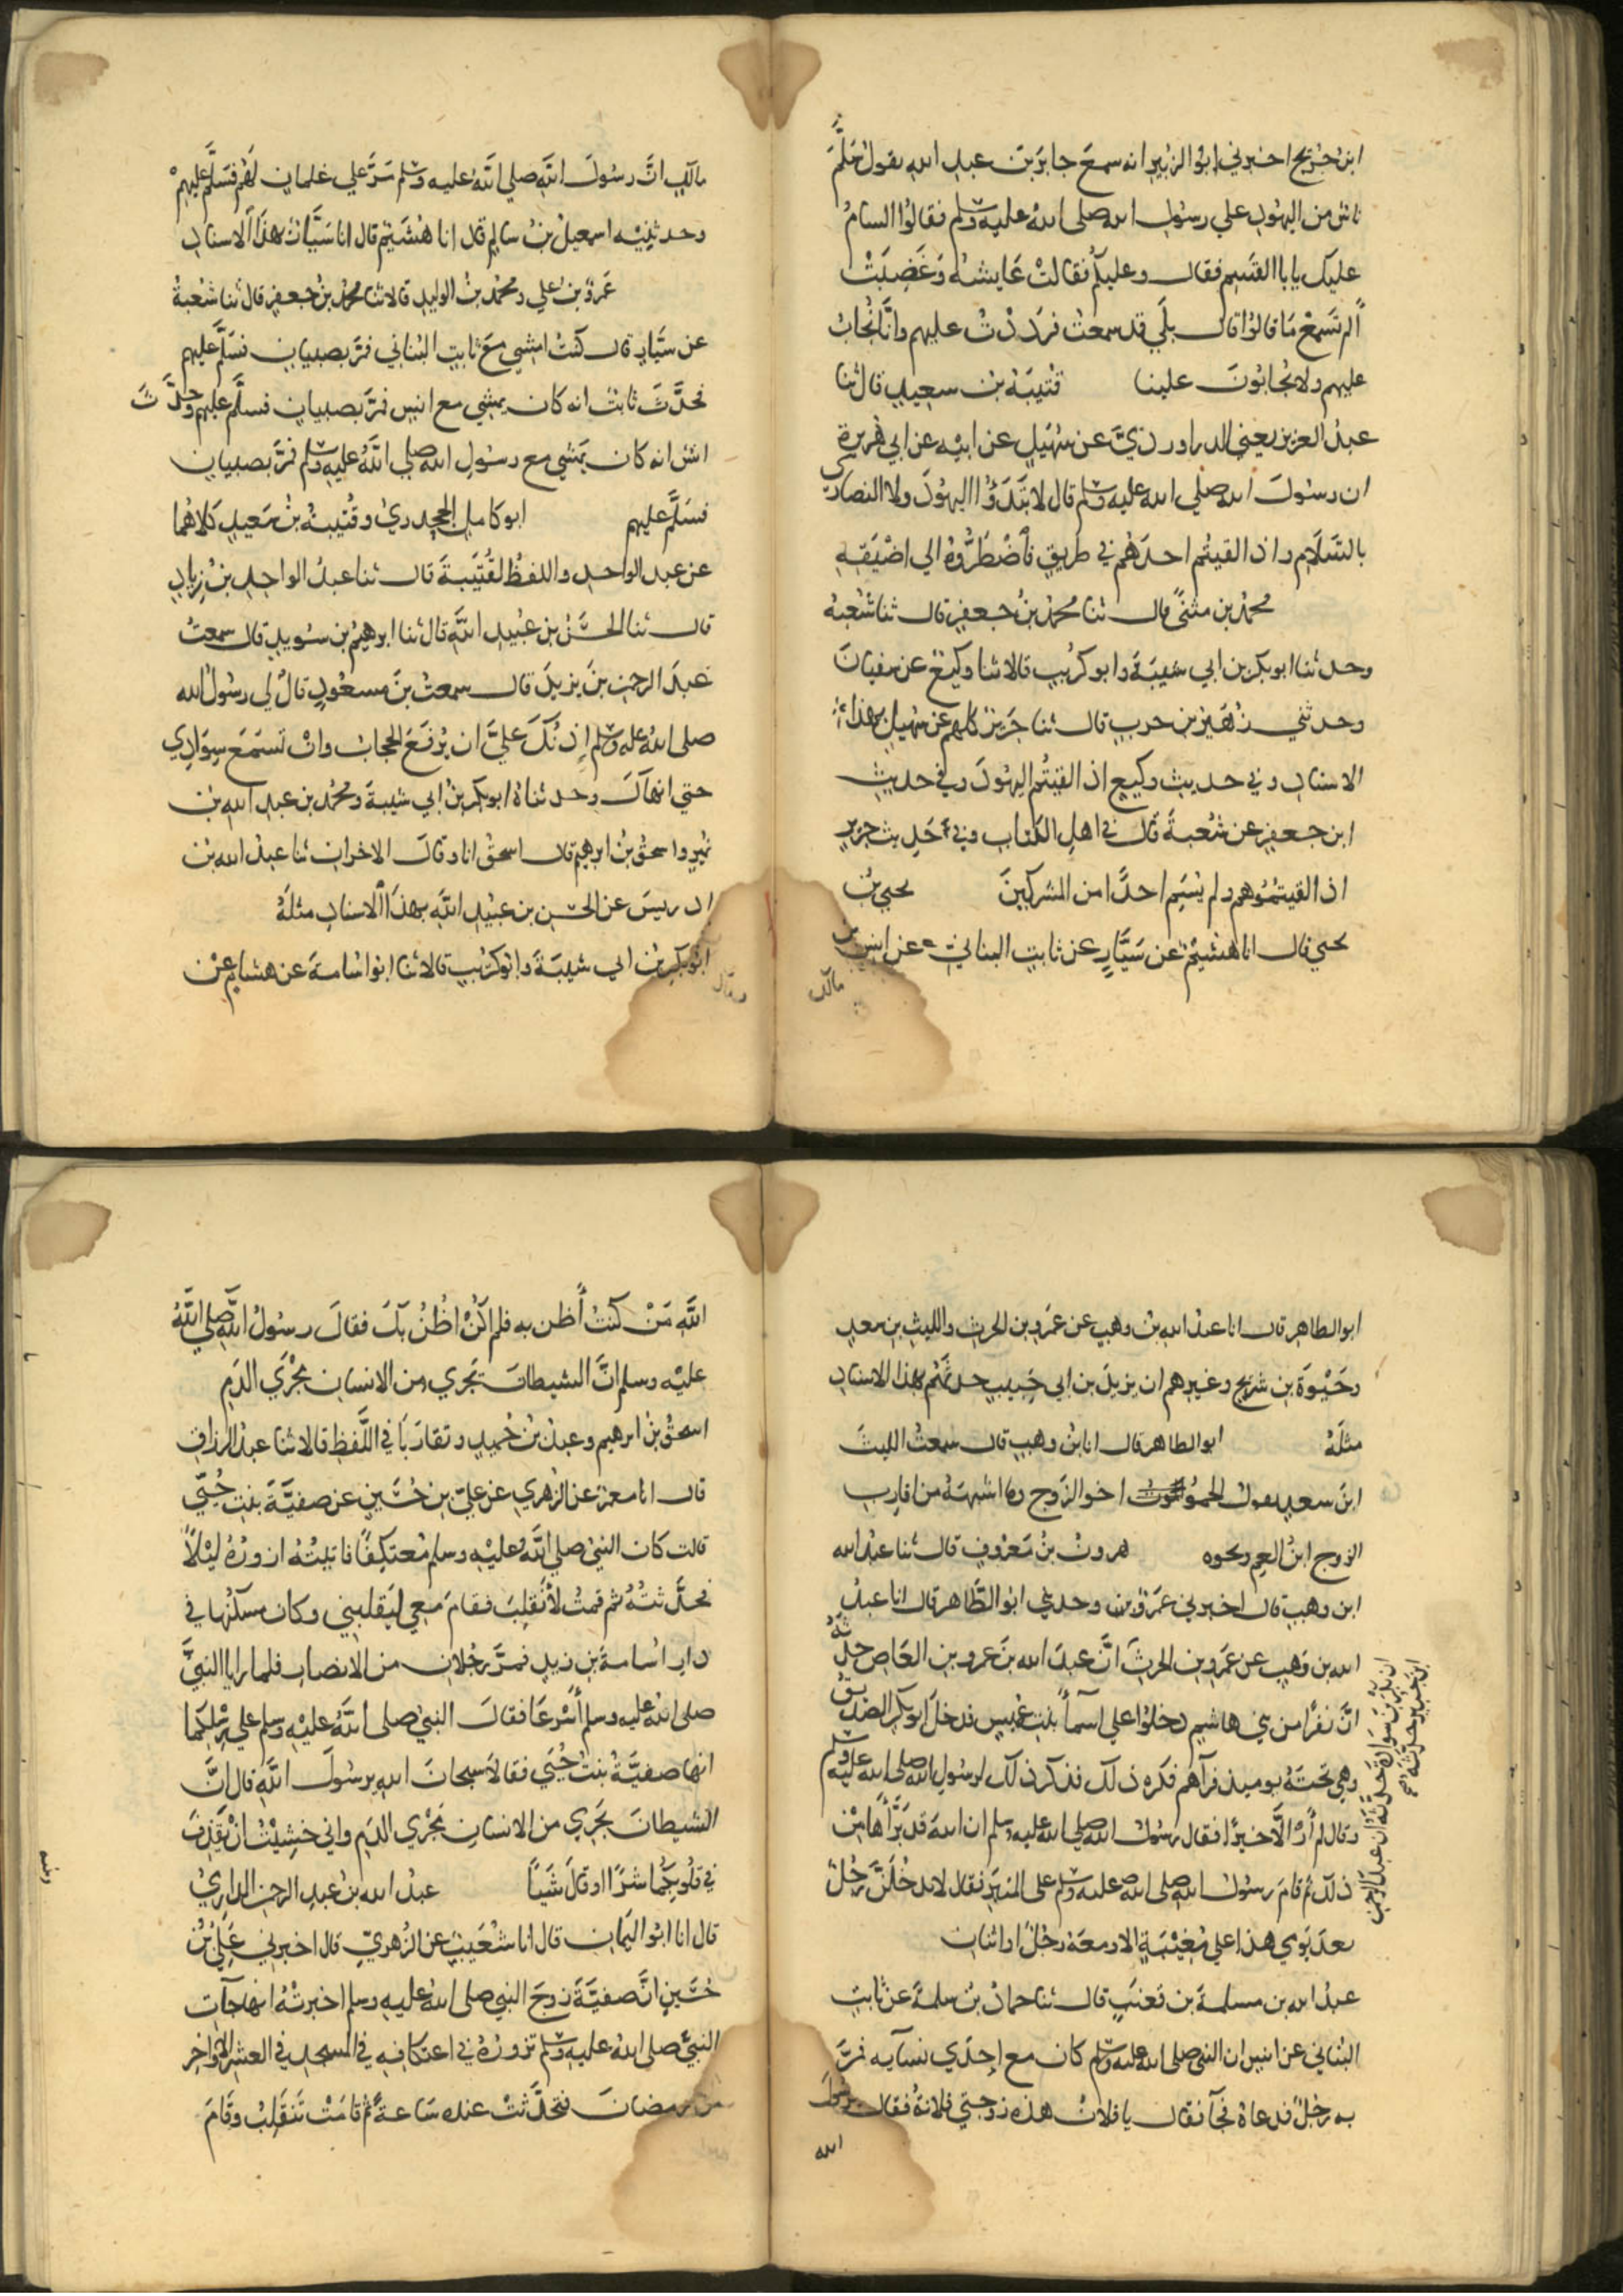 ابن جريج اخبرني ابو الزبير انه سمع جابر بن عبد الله يقول سلّم
ناس من اليهود علي رسول الله صلى الله عليه وسلم فقالوا السام
عليك يابا القسم فقال وعليكم فقالت عايشة وَغَضِبَتْ
ألم تسمع ما قالوا قال بلَي قد سمعت فرددْتُ عليهم وانّا نُجابُ
عليهم ولا يُجابُونَ علينا قتيبة بن سعيد قال ثنا
عبد العزيز يعني الدراوردي عن سُهَيل عن ابيه عن ابي هريرة
ان رسول الله صلي الله عليه وسلم قال لا تبدَؤُا اليهودَ ولا النصاري
بالسَّلَام واذا لقيتُم احدَهُم في طريق فأضْطَرُّوهُ الي اضْيَقِهِ
محمد بن مثنّي قال ثنا محمد بن جعفر قال ثنا شعبة
وحدثنا ابو بكر بن ابي شيبة وابو كريب قالا ثنا وكيع عن سفيان
وحدثني زهير بن حرب قال ثنا جرير كلهم عن سهيل بهذا
الاسناد وفي حديث وكيع اذا لقيتُم اليهودَ وفي حديث
ابن جعفر عن شعبة قال في اهل الكتاب وفي حديث جرير
اذا لقيتموهم ولم يُسَمِّ احدًا من المشركينَ يحيي بن
يحيي قال انا هُشَيْمٌ عن سَيَّارٍ عن ثابت البناني عن انس بن
مالك
مالك انَّ رسولَ اللهِ صلي الله عليه وسلم مَرَّ علي غلمان لهُم فسَلَّم عليهمْ
وحدثنِيه اسمعيل بن سالم قال انا هُشَيْم قال انا سَيَّارٌ بهذا الاسناد
عَمرو بن علي ومحمد بن الوليد قالا ثنا محمد بن جعفر قال ثنا شعبةُ
عن سَيَّار قال كنتُ امشي معَ ثابت البُناني فمَرَّ بصبيان فسَلَّم عليهم
فحدَّثَ ثابتٌ انه كان يمشي مع انس فمرَّ بصبيان فسلَّم عليهم وحدَّثَ
انسٌ انه كان يمشي مع رسولِ الله صلي الله عليه وسلم فمرَّ بصبيان
فسَلَّم عليهم ابو كامل الجحدري وقتيبة بن سَعيد كلاهُما
عن عبد الواحد واللفظ لقُتَيبةَ قال ثنا عبدُ الواحد بنُ زياد
قال ثنا الحَسَنُ بن عبيد اللهِ قال ثنا ابرهيم بن سُويد قال سمعتُ
عبدَ الرحمن بنَ يزيدَ قال سمعتُ بنَ مسعُودٍ قالَ لي رسُولُ الله
صلى الله عليه وسلم إذنُكَ عليَّ ان يُرْفَعَ الحجابُ وانْ تَسْتَمِعَ سِوَادِي
حتي انهاكَ وحدثناهُ ابو بكر بنُ ابي شيبةَ ومحمد بن عبد الله بن
نُمير واسحقُ بنُ ابرهيم قال اسحقُ انا وقالَ الاخران ثنا عبدُ الله بن
ادريسَ عن الحَسَن بن عبَيدِ اللهِ بهذا الاسناد مثلَهُ
ابُو بكر بن ابي شيبَةَ وابُو كريب قالا ثنا ابُو اسامةَ عن هشام عنْ
ابو الطاهر قال انا عبد الله بن وهب عن عَمرو بن الحرث والليث بن سعد
وحَيْوَةَ بن شريح وغيرهم ان يزيدَ بن ابي حَبيب حدثهُم بهذا الاسناد
مثلَهُ ابو الطاهر قال انا بنُ وهب قال سمعتُ الليثَ
ابنَ سعدٍ يقول الحموُ اخو الزوج وما اشبهَهُ من اقاربِ
الزوج ابنُ العم ونحوه هرونُ بنُ مَعْرُوف قال ثنا عبدُ الله
ابن وهب قال اخبرني عَمرٌو وحدثني ابو الطَّاهر قال انا عبدُ
الله بن وَهبٍ عن عَمْرو بن الحرث انَّ عبدَ الله بنَ عمرو بن العَاصِ حدَّثَهُ
انَّ نفَرًا من بني هاشم دخلوا علي اسمآءَ بنت عُمَيس فدخلَ ابو بكر الصديق
وهي تحتَهُ يوميذ فرآهم فكَرِه ذلك فذكَر ذلك لرسولِ الله صلى الله عليه وسلم
وقال لم أرَ الَّا خيرًا فقال رسُولُ الله صلي الله عليه وسلم ان الله قد بَرَّأَهَا مِنْ
ذلكَ ثُم قامَ رسُولُ الله صلى الله عليه وسلم على المنبَرِ فقال لا يدخُلَنَّ رَجُلٌ
بعدَ يَومِي هذا علي مُغِيْبَةٍ الا ومعَهُ رجُلٌ او اثنان
عبدُ الله بن مسلمة بن قعنَبٍ قال ثنا حماد بن سلمةَ عن ثابتٍ
البُناني عن انس ان النبي صلى الله عليه وسلم كان مع احدَي نسآيه فمرَّ
به رَجُلٌ فدعاهُ فجآءَ فقال يا فلانُ هذه زوجتي فلانةُ فقال يرسُولَ
الله
اللهِ مَنْ كنتُ أظن به فلم اكُنْ اظُنُّ بِكَ فقالَ رسُولُ اللهِ صلي اللهُ
عليْه وسلم انَّ الشيطانَ يَجْري من الانسان مَجْرَي الدَمِ
اسحقُ بنُ ابرهيم وعبدُ بنُ حُميد وتقارَبَا في اللَّفظِ قالا ثنا عبدُ الرزاق
قال انا معمَرٌ عن الزُهري عن عليّ بن حُسَينٍ عن صفيَّةَ بنت حُيَيّ
قالت كان النبيُ صلي الله عليه وسلم مُعتكِفًا فاتيتُهُ ازورُهُ ليْلًا
فحدَّثتُهُ ثم قمتُ لأنقَلِبَ فقامَ مَعِي ليَقلِبني وكان مسكنُها في
دار اُسامةَ بن زيد فمرَّ رجُلان من الانصار فلما رايا النبيَّ
صلى الله عليه وسلم أسْرعَا فقالَ النبيُ صلى اللهُ عليه وسلم علي رِسْلِكُمَا
انها صفيَّةُ بنتُ حُيَي فقالا سبحانَ اللهِ يرسُولَ اللهِ قال انَّ
الشيطانَ يَجْرِي من الانسان مَجْرَي الدَم واني خشِيْتُ انْ يَقْذِفَ
في قلُوبكُمَا شرًا او قالَ شَيئًا عبدُ الله بنُ عبدِ الرحمن الدارِميُ
قال انا ابُو اليَمان قال انا شُعَيبٌ عن الزُهريّ قال اخبرني عَلِيُّ بنُ
حُسَينٍ انَّ صفيَّةَ زوجَ النبي صلى الله عليه وسلم اخبرتْهُ انها جآءت
النبيَّ صلى الله عليه وسلم تزورُهُ في اعتكافه في المسجد في العشر الاواخر
من رمضانَ فتحدَّثتْ عنده سَاعةً ثُم قامَتْ تَنقَلِبُ وقَامَ